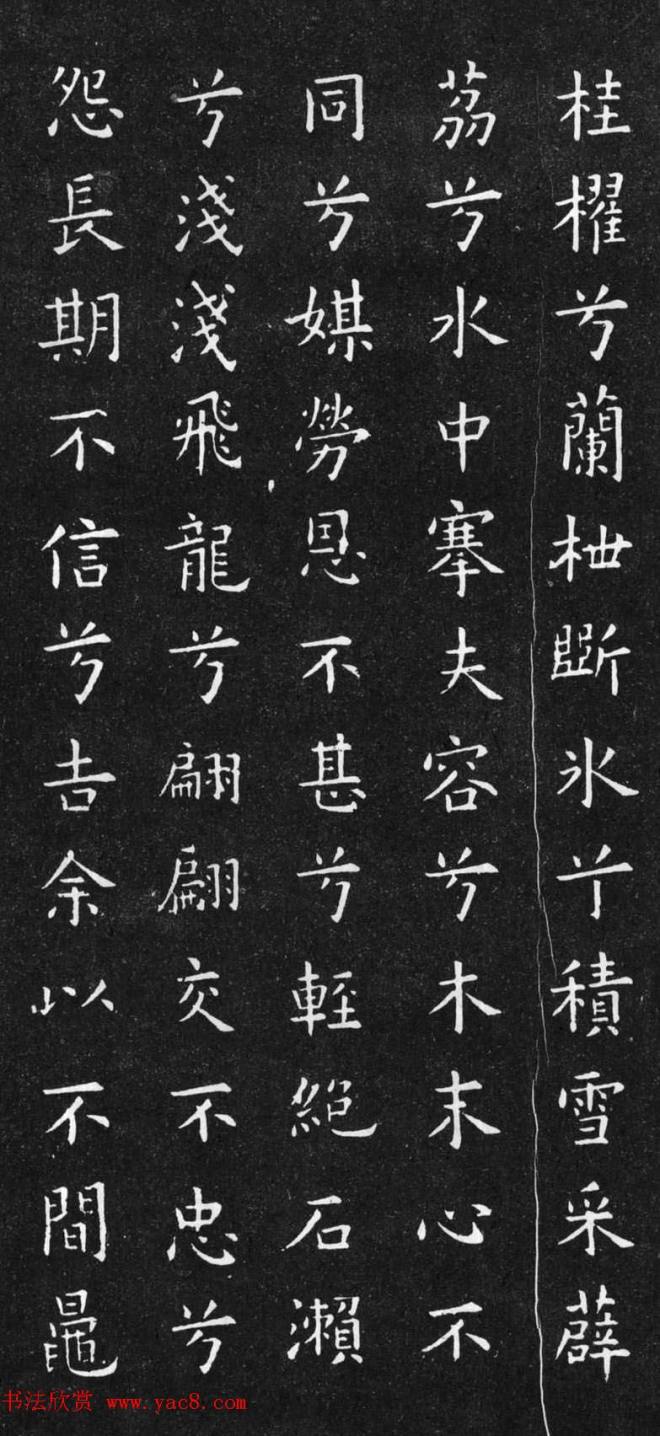 桂櫂兮蘭枻斲氷兮積雪采薜
荔兮水中搴夫容兮木末心不
同兮媒勞恩不甚兮輕絕石瀨
兮淺淺飛龍兮翩翩交不忠兮
怨長期不信兮吿余以不閒鼂
书法欣赏 www.yac8.com